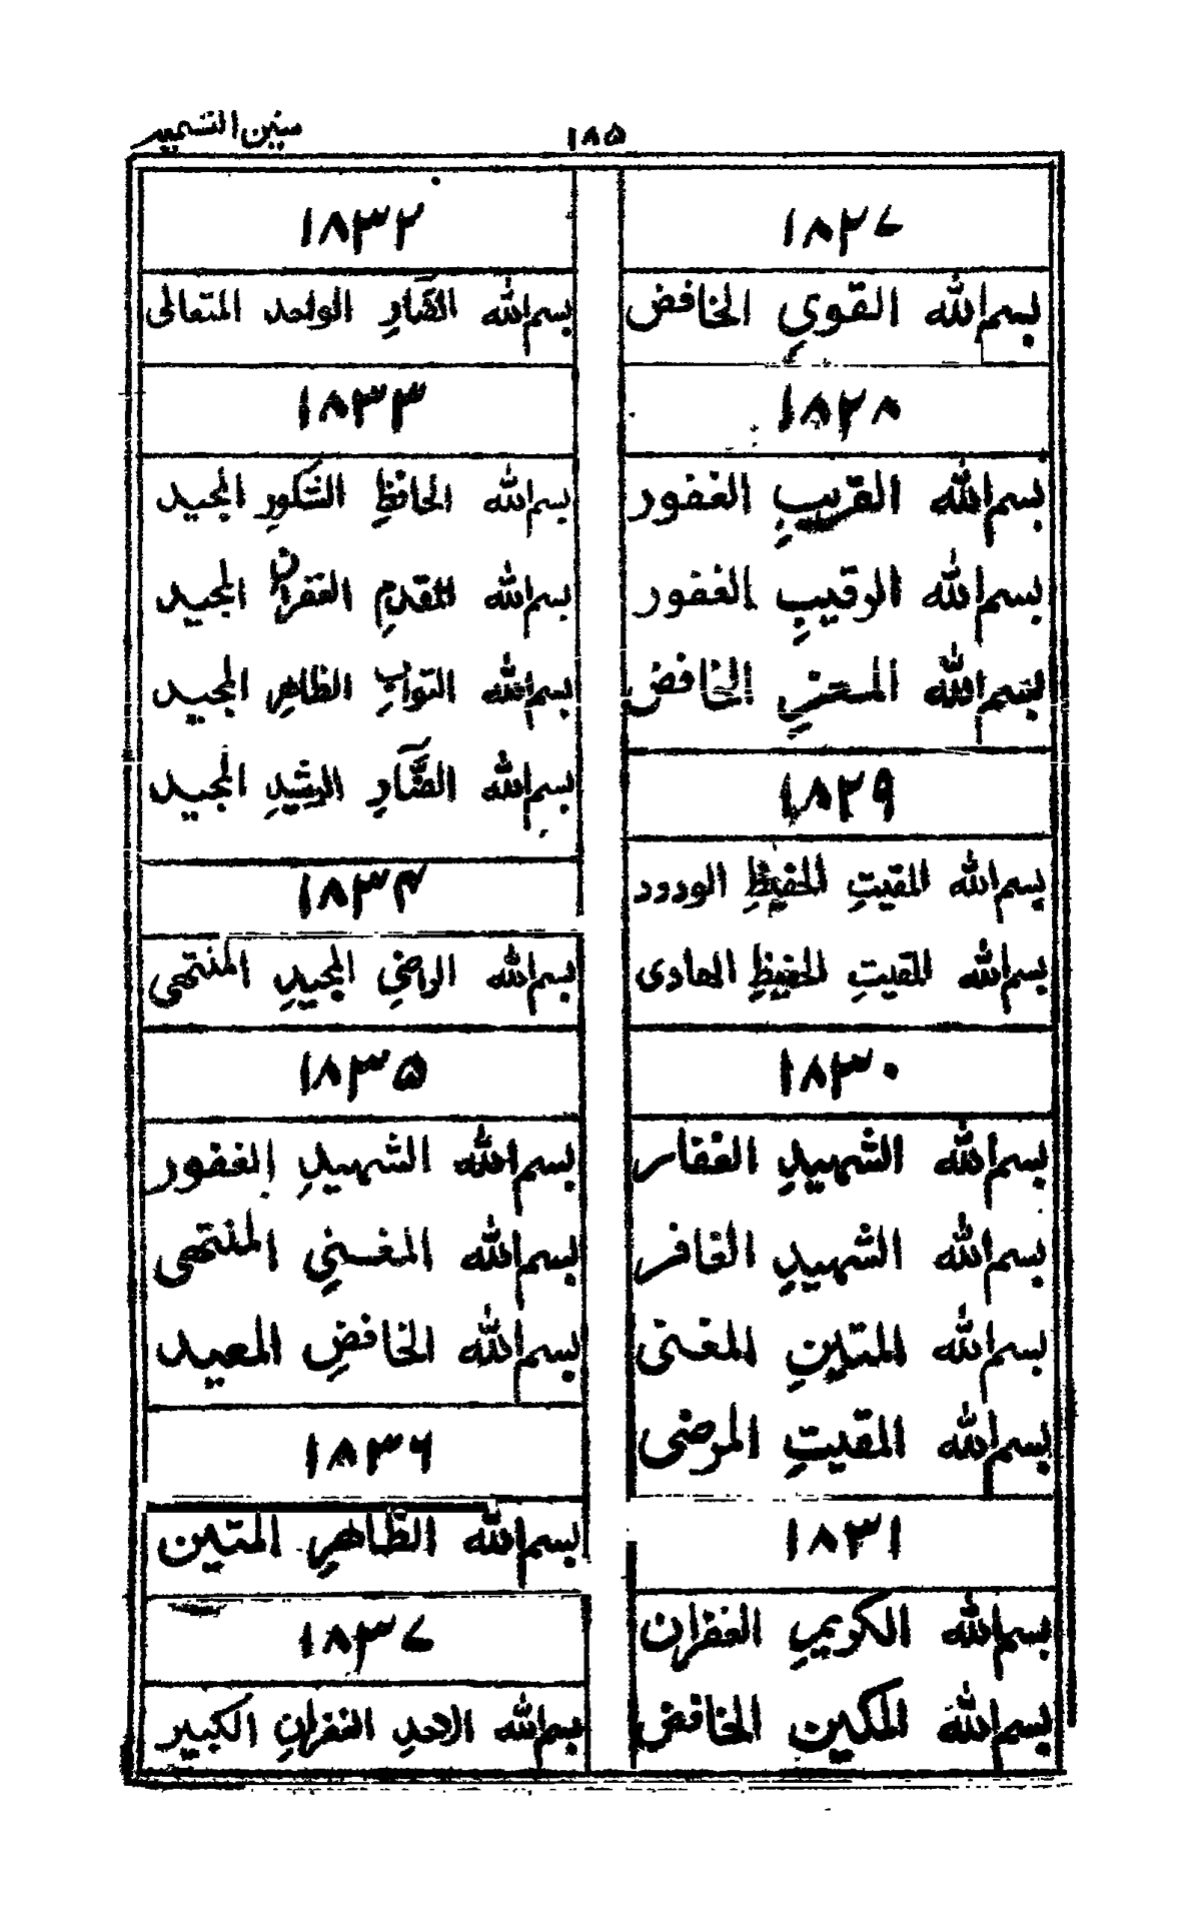 ۱۸۵
سنین التسمیہ
۱۸۲۷
بسم الله القويِ الخافض
۱۸۲۸
بسم الله القريبِ الغفور
بسم الله الرقيبِ الغفور
بسم الله المعزِ الخافض
۱۸۲۹
بسم الله المقيتِ الحفيظِ الودود
بسم الله المقيتِ الحفيظِ الهادى
۱۸۳۰
بسم الله الشهيدِ الغفار
بسم الله الشهيدِ الغافر
بسم الله المتينِ المغنى
بسم الله المقيتِ المرضى
۱۸۳۱
بسم الله الكريمِ الغفران
بسم الله المكين الخافض
۱۸۳۲
بسم الله الضَّارِ الواحد المتعالى
۱۸۳۳
بسم الله الحافظِ الشكورِ المجيد
بسم الله المقدمِ الغفران المجيد
بسم الله التوابِ الظاهرِ المجيد
بسم الله الضَّارِ الرشيدِ المجيد
۱۸۳۴
بسم الله الراضيِ المجيدِ المنتهى
۱۸۳۵
بسم الله الشهيدِ الغفور
بسم الله المغنيِ المنتهى
بسم الله الخافضِ المعيد
۱۸۳۶
بسم الله الظاهرِ المتين
۱۸۳۷
بسم الله الاحدِ الغفرانِ الكبير